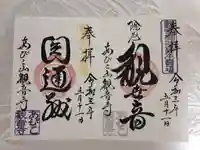 奉拝
令和三年
五月十一日
除厄
觀世音
あびこ山観音寺
奉拝
令和三年
五月十一日
圓通
あびこ山観音寺